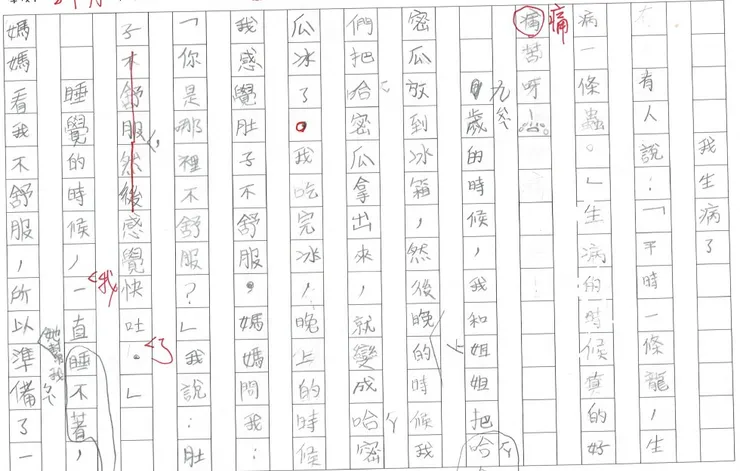 我生病了
有人說：「平時一條龍，生
病一條蟲。」生病的時候真的好
痛苦呀！
九歲的時候，我和姐姐把哈
密瓜放到冰箱，然後晚上的時候我
們把哈密瓜拿出來，就變成哈密
瓜冰了。我吃完冰，晚上的時候
我感覺肚子不舒服，媽媽問我：
「你是哪裡不舒服？」我說：肚
子不舒服，然後感覺快吐了。」
睡覺的時候，我一直睡不著，
媽媽看我不舒服，所以她幫我準備了一